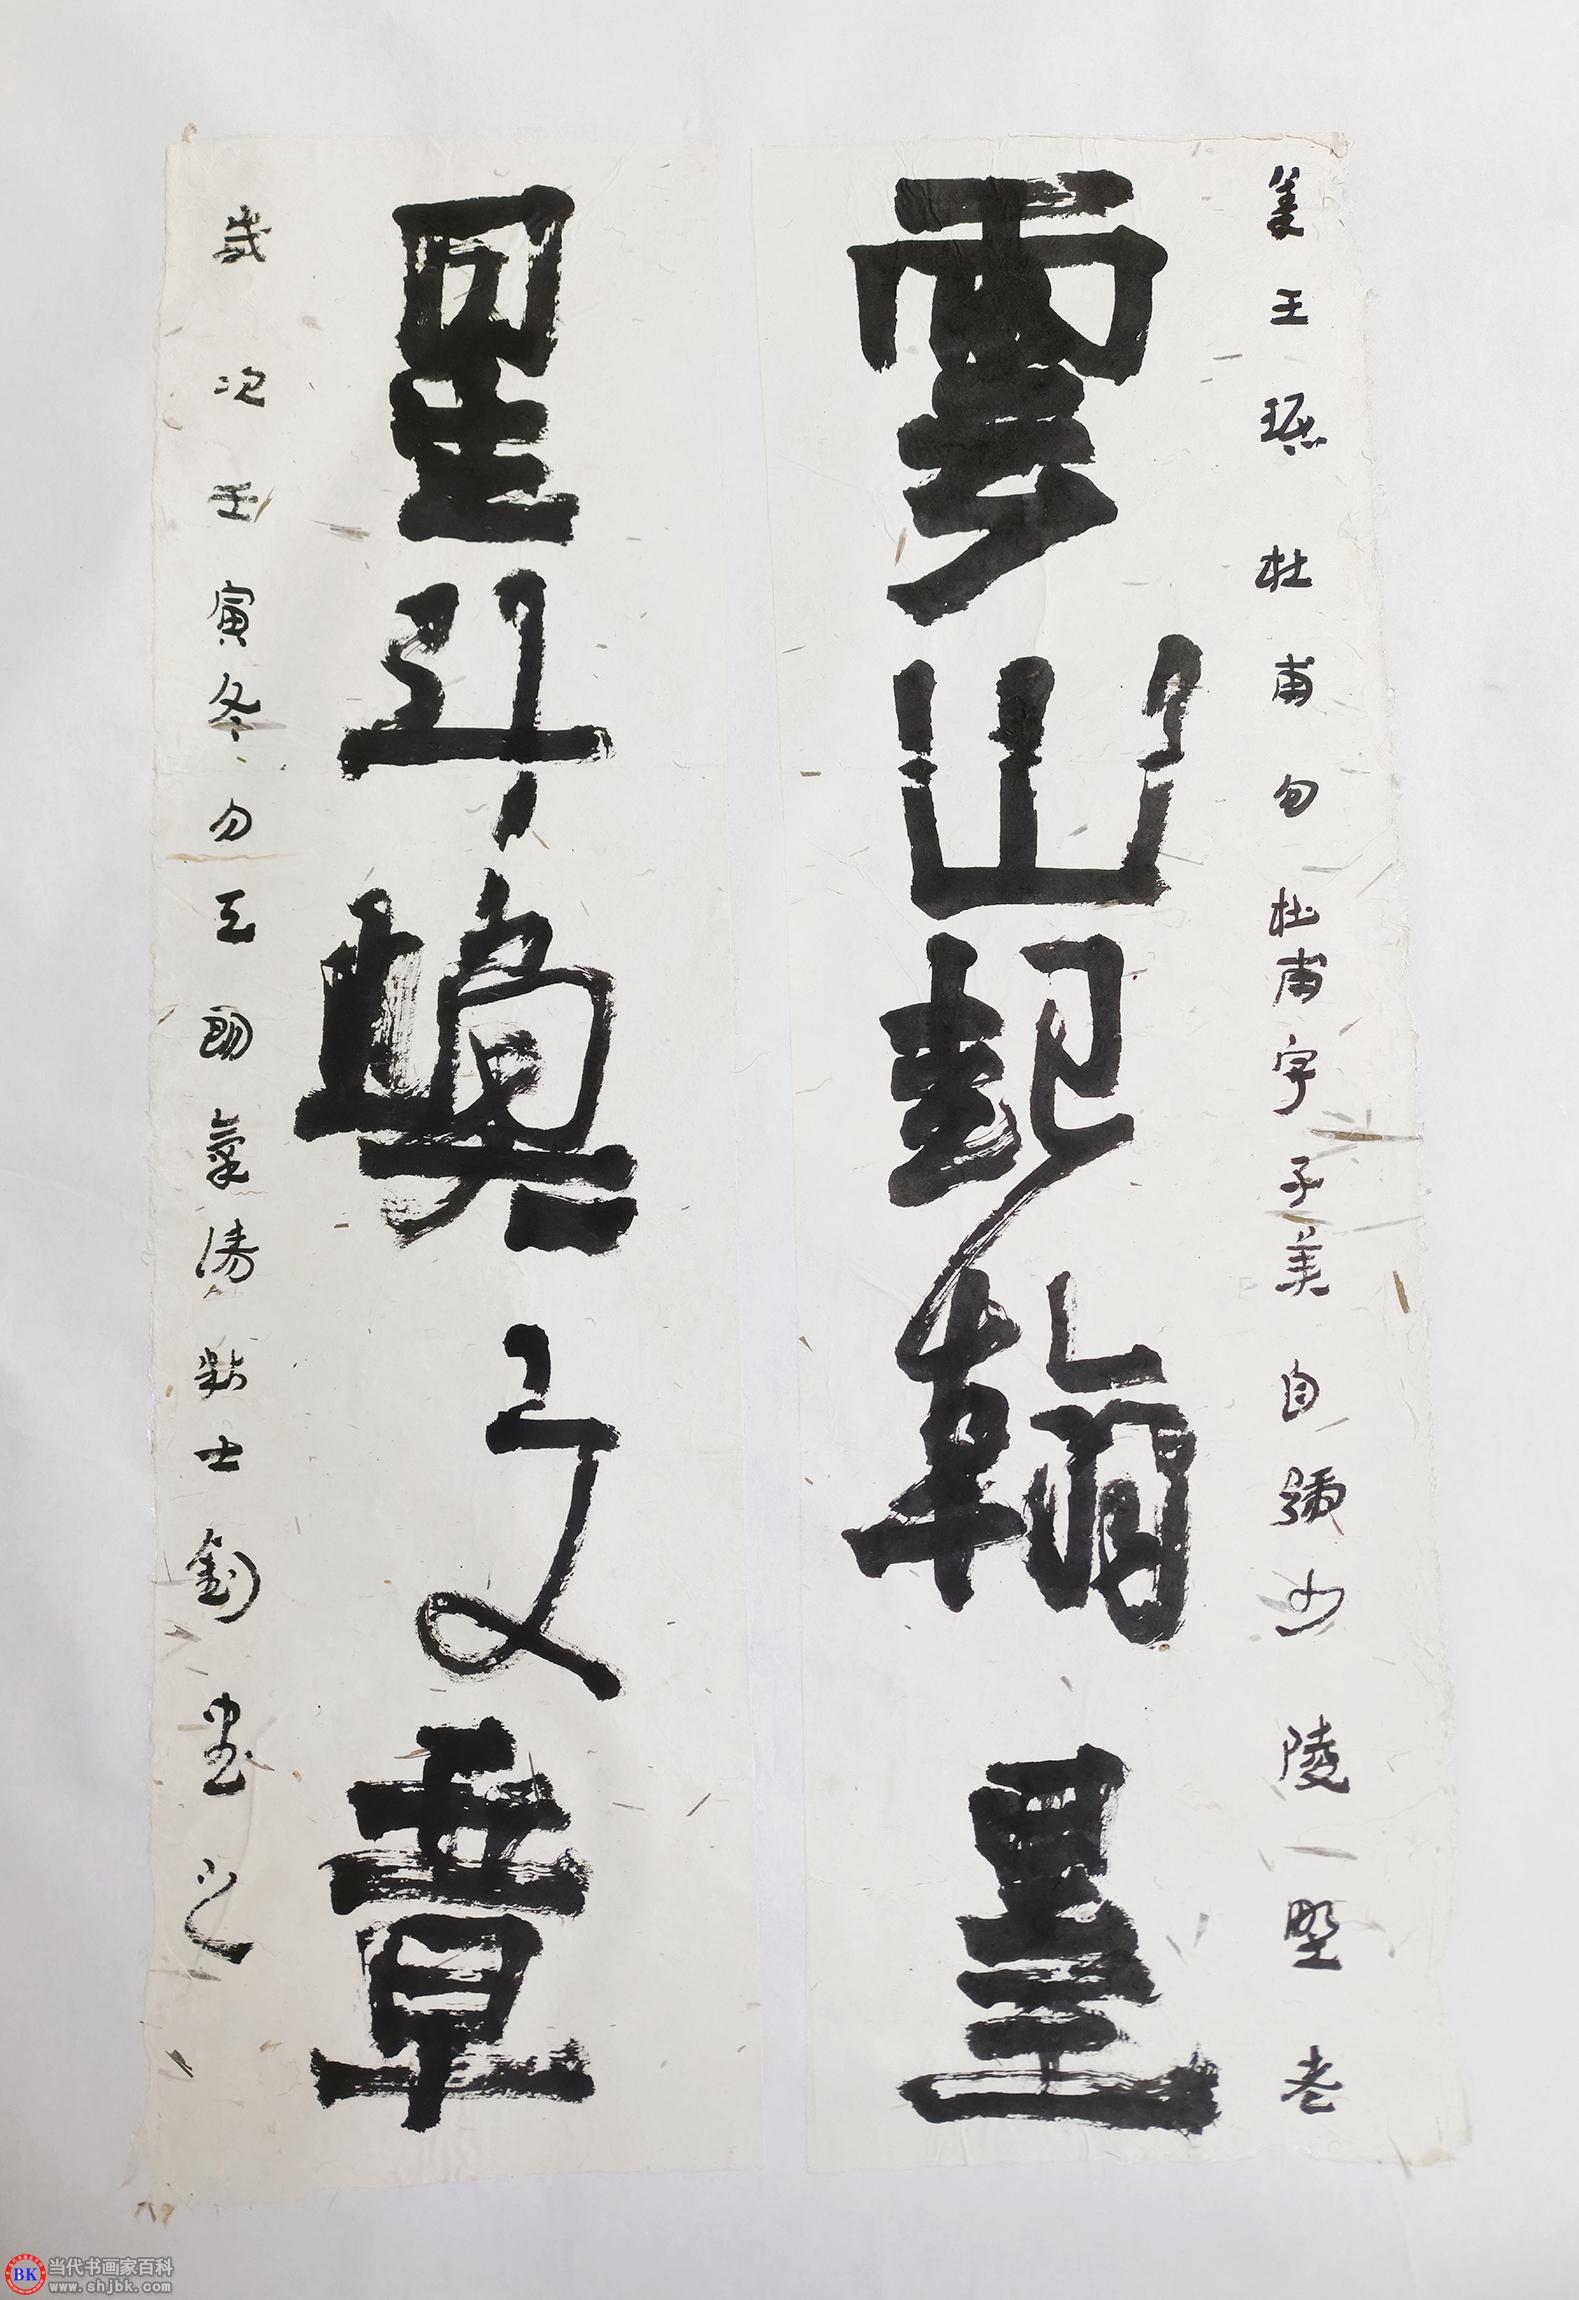 雲山起翰墨
星斗煥文章
美王琚 杜甫句 杜甫字子美自號少陵野老
歲次壬寅冬 劉 書之
BK 当代书画家百科
www.shjbk.com